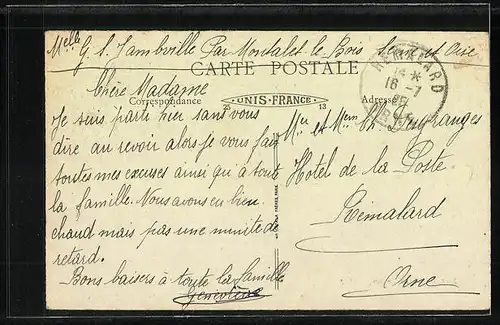 Melle G. S. Jambville Par Montalet le Bois Seine et Oise
CARTE POSTALE
Correspondance
UNIS-FRANCE
25 13
Adresse
Chère Madame
Je suis partie hier sans vous
dire au revoir alors je vous fais
toutes mes excuses ainsi qu'à toute
la famille. Nous avons eu bien
chaud mais pas une minute de
retard.
Bons baisers à toute la famille
Geneviève
Mr et Mme
Hotel de la Poste
Rémalard
Orne
REMALARD
16 -7